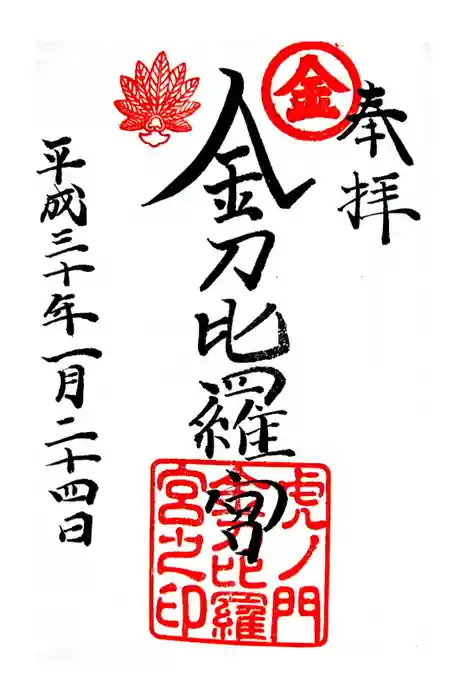 奉拝
金
金刀比羅宮
虎ノ門
金刀比羅
宮之印
平成三十年一月二十四日